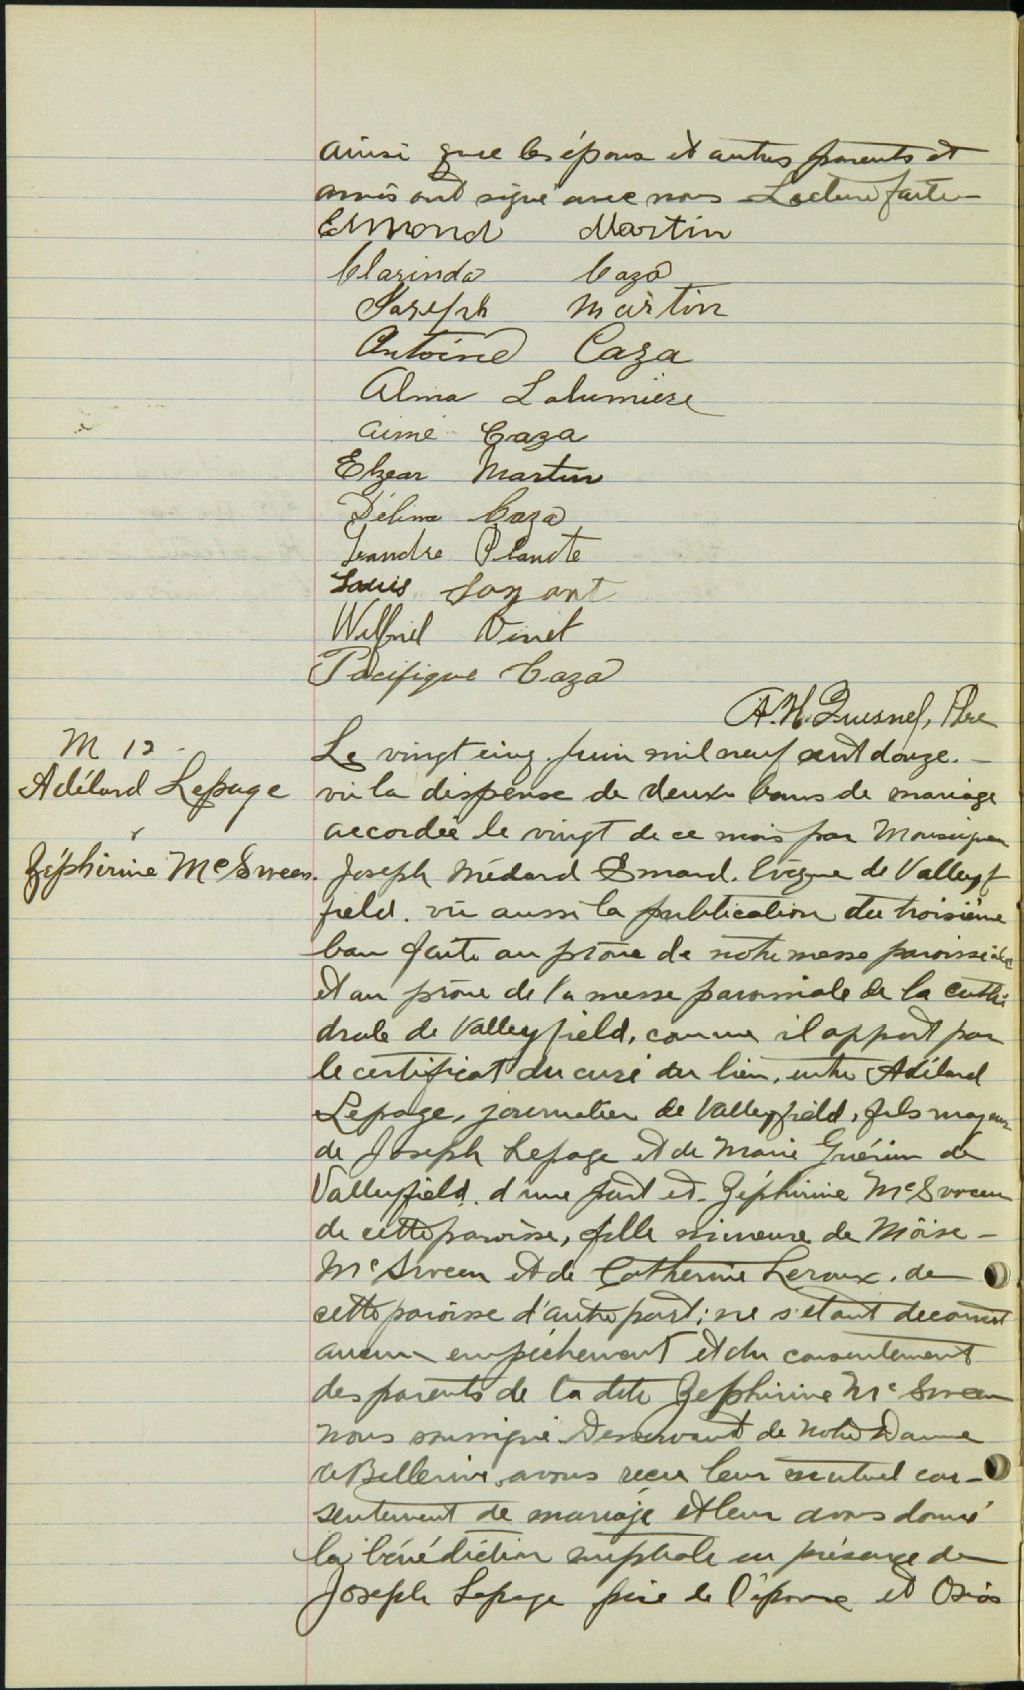 ainsi que les époux et autres parents et
amis ont signé avec nous Lecture faite -
Edmond Martin
Clarinda Caza
Joseph Martin
Antoine Caza
Alma Lalumiere
Aimé Caza
Elzear Martin
Délima Caza
Leandre Plante
Louis
Wilfrid Vinet
Pacifique Caza
A. H. Quesnel, Ptre
M 12
Adélard Lepage
&
Zéphirine McSween.
Le vingt cinq juin mil neuf cent douze. -
vu la dispense de deux bans de mariage
accordée le vingt de ce mois par Monseigneur
Joseph Médard Emard. Evêque de Valley
field. vu aussi la publication du troisième
ban faite au prône de notre messe paroissiale
et au prône de la messe paroissiale de la cathé
drale de Valleyfield, comme il appert par
le certificat du curé du lieu, entre Adélard
Lepage, journalier de Valleyfield, fils majeur
de Joseph Lepage et de Marie Guérin de
Valleyfield. d'une part et Zéphirine McSween
de cette paroisse, fille mineure de Moïse -
McSween et de Catherine Leroux, de
cette paroisse d'autre part; ne s'étant découvert
aucun empêchement et du consentement
des parents de la dite Zephirine McSween
nous soussigné Desservant de Notre Dame
de Bellerive avons reçu leur mutuel con-
sentement de mariage et leur avons donné
la bénédiction nuptiale en présence de
Joseph Lepage père de l'époux et Osias